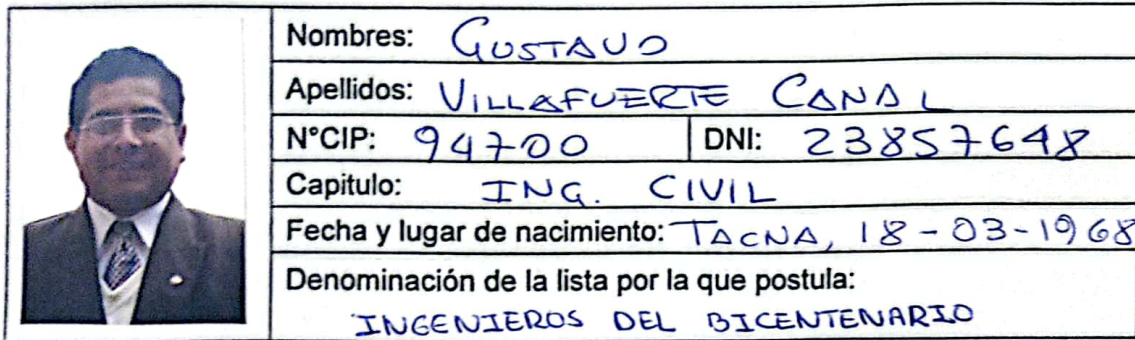 Nombres: GUSTAVO
Apellidos: VILLAFUERTE CANAL
N°CIP: 94700 DNI: 23857648
Capitulo: ING. CIVIL
Fecha y lugar de nacimiento: TACNA, 18-03-1968
Denominación de la lista por la que postula:
INGENIEROS DEL BICENTENARIO